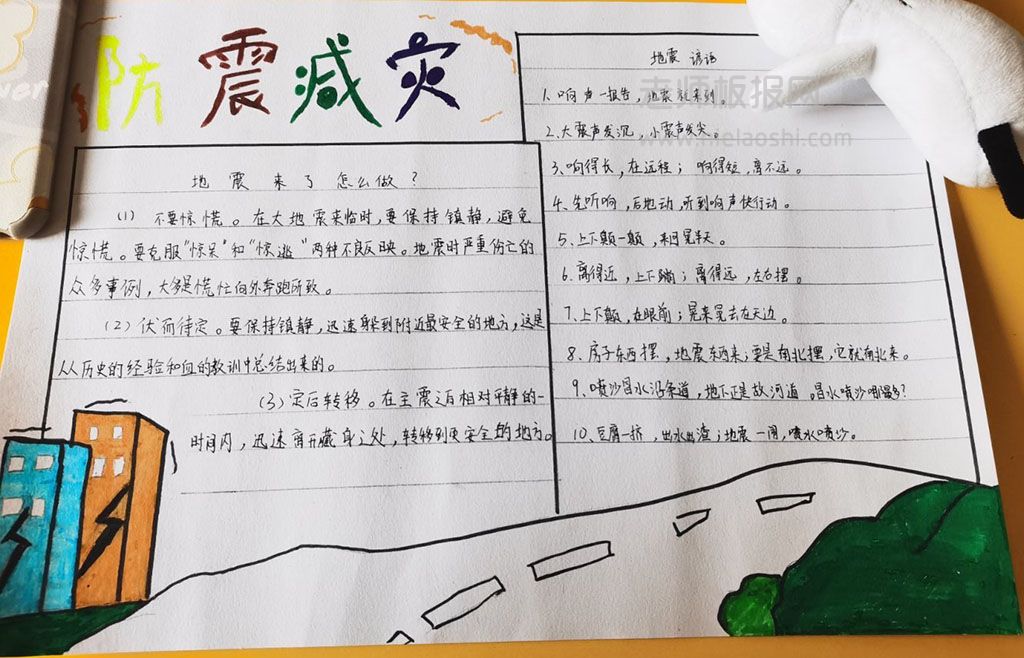 防震减灾
地震来了怎么做?
(1) 不要惊慌。在大地震来临时,要保持镇静,避免
惊慌。要克服“惊呆”和“惊逃”两种不良反映。地震时严重伤亡的
众多事例,大多是慌忙向外奔跑所致。
(2) 伏而待定。要保持镇静,迅速躲到附近最安全的地方,这是
从历史的经验和血的教训中总结出来的。
(3) 定后转移。在主震之后相对平静的一
时间内,迅速离开藏身之处,转移到更安全的地方。
地震 谚语
1、响声一报告,地震就来到。
2、大震声发沉,小震声发尖。
3、响得长,在远程;响得短,离不远。
4、先听响,后地动,听到响声快行动。
5、上下颠一颠,来回晃半天。
6、离得近,上下蹦;离得远,左右摆。
7、上下颠,在眼前;晃来晃去在天边。
8、房子东西摆,地震东西来;要是南北摆,它就南北来。
9、喷沙冒水沿条道,地下正是故河道。冒水喷沙哪最多?
10、豆腐一挤,出水出渣;地震一闹,喷水喷沙。
老师板报网
www.melaoshi.com